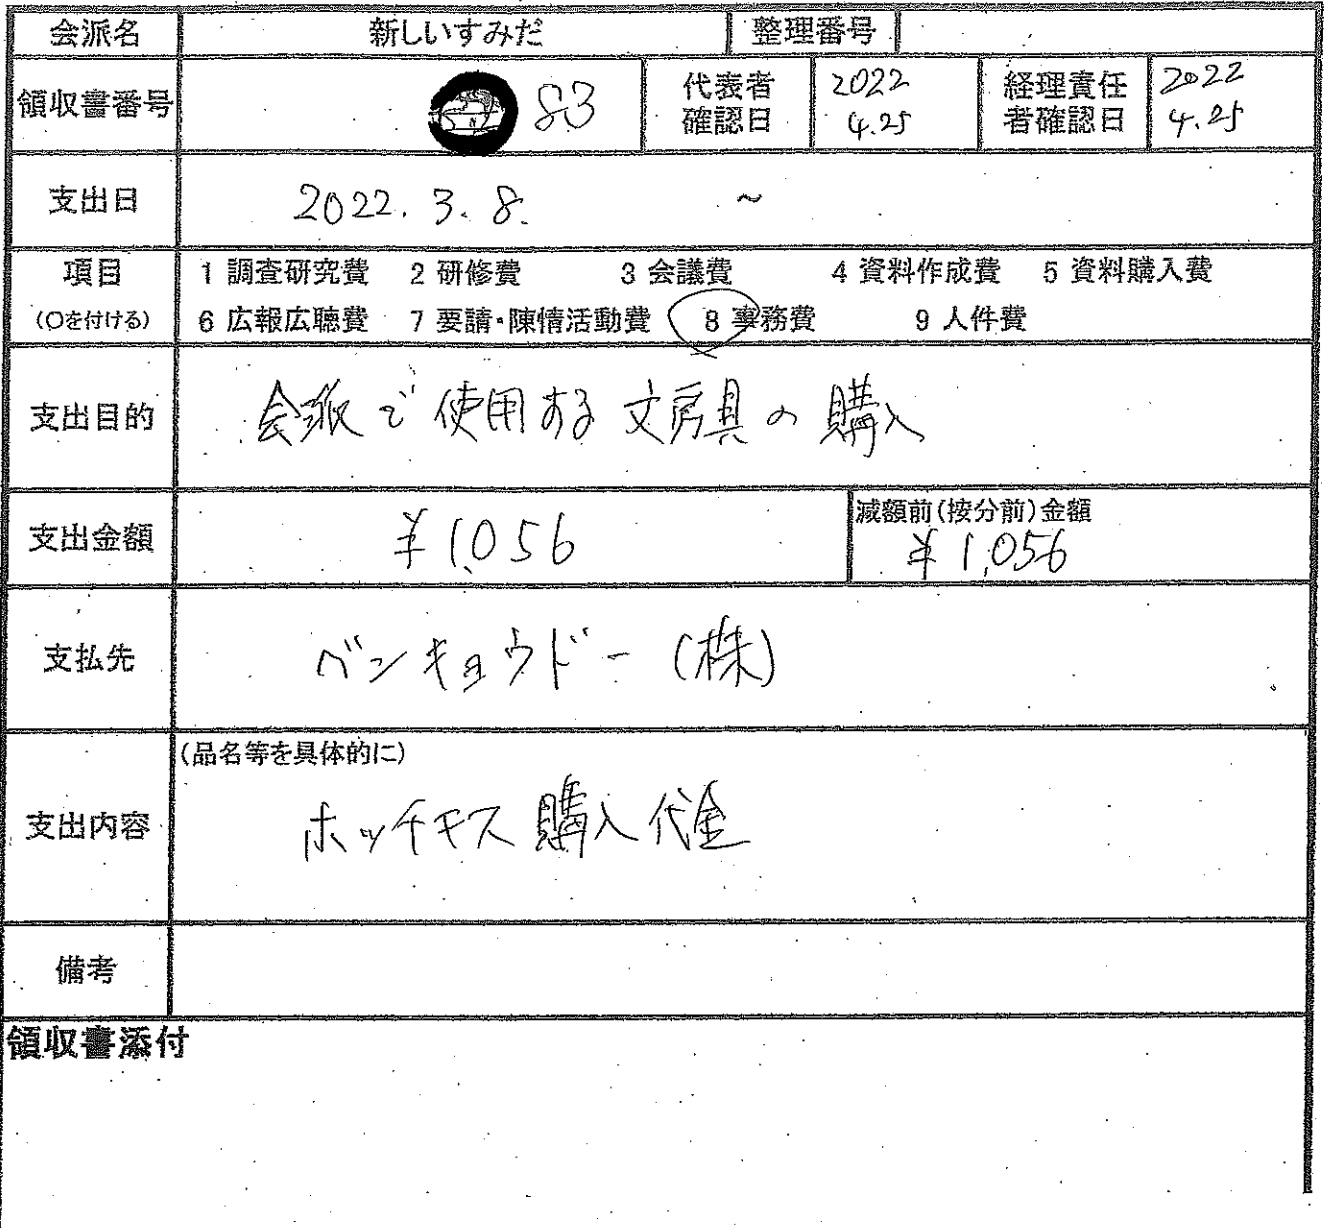 会派名 新しいすみだ 整理番号
領収書番号 83 代表者確認日 2022 4.25 経理責任者確認日 2022 4.25
支出日 2022.3.8. ~
項目 1 調査研究費 2 研修費 3 会議費 4 資料作成費 5 資料購入費
(○を付ける) 6 広報広聴費 7 要請・陳情活動費 8 事務費 9 人件費
支出目的 会派で使用する文房具の購入
減額前(按分前)金額
支出金額 ¥1,056 ¥1,056
支払先 ベンキョウドー(株)
(品名等を具体的に)
支出内容 ホッチキス購入代金
備考
領収書添付